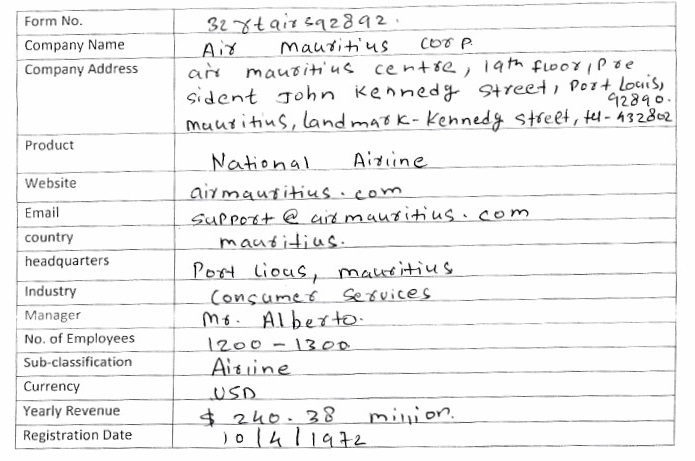 Form No. 32rtairs92892.
Company Name Air mauritius corp.
Company Address air mauritius centre, 19th floor, Pre
sident John Kennedy street, Port Louis,
92890.
mauritius, landmark-Kennedy street, tel-432802
Product National Airline
Website airmauritius.com
Email support@airmauritius.com
country mauritius.
headquarters Port lious, mauritius
Industry Consumer Services
Manager Mr. Alberto.
No. of Employees 1200 - 1300
Sub-classification Airline
Currency USD
Yearly Revenue $ 240.38 million.
Registration Date 10/4/1972